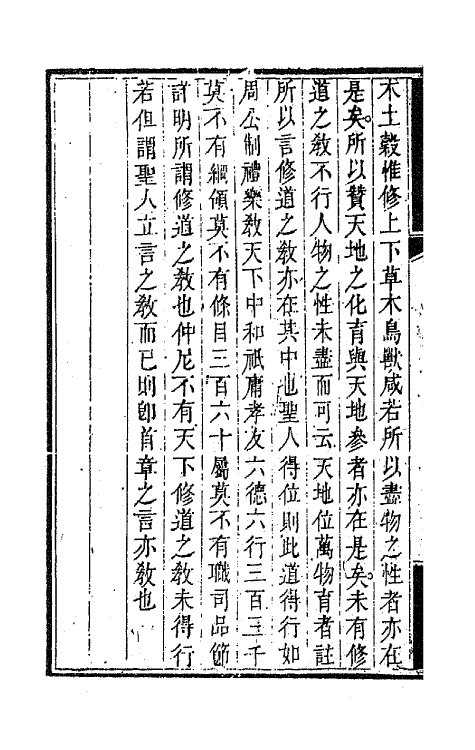 木土穀惟修上下草木鳥獸咸若所以盡物之性者亦在
是矣。所以贊天地之化育與天地參者亦在是矣。未有修
道之敎不行人物之性未盡而可云天地位萬物育者註
所以言修道之敎亦在其中也聖人得位則此道得行如
周公制禮樂敎天下中和祗庸孝友六德六行三百三千
莫不有綱領莫不有條目三百六十屬莫不有職司品節
詳明所謂修道之敎也仲尼不有天下修道之敎未得行
若但謂聖人立言之敎而已則卽首章之言亦敎也